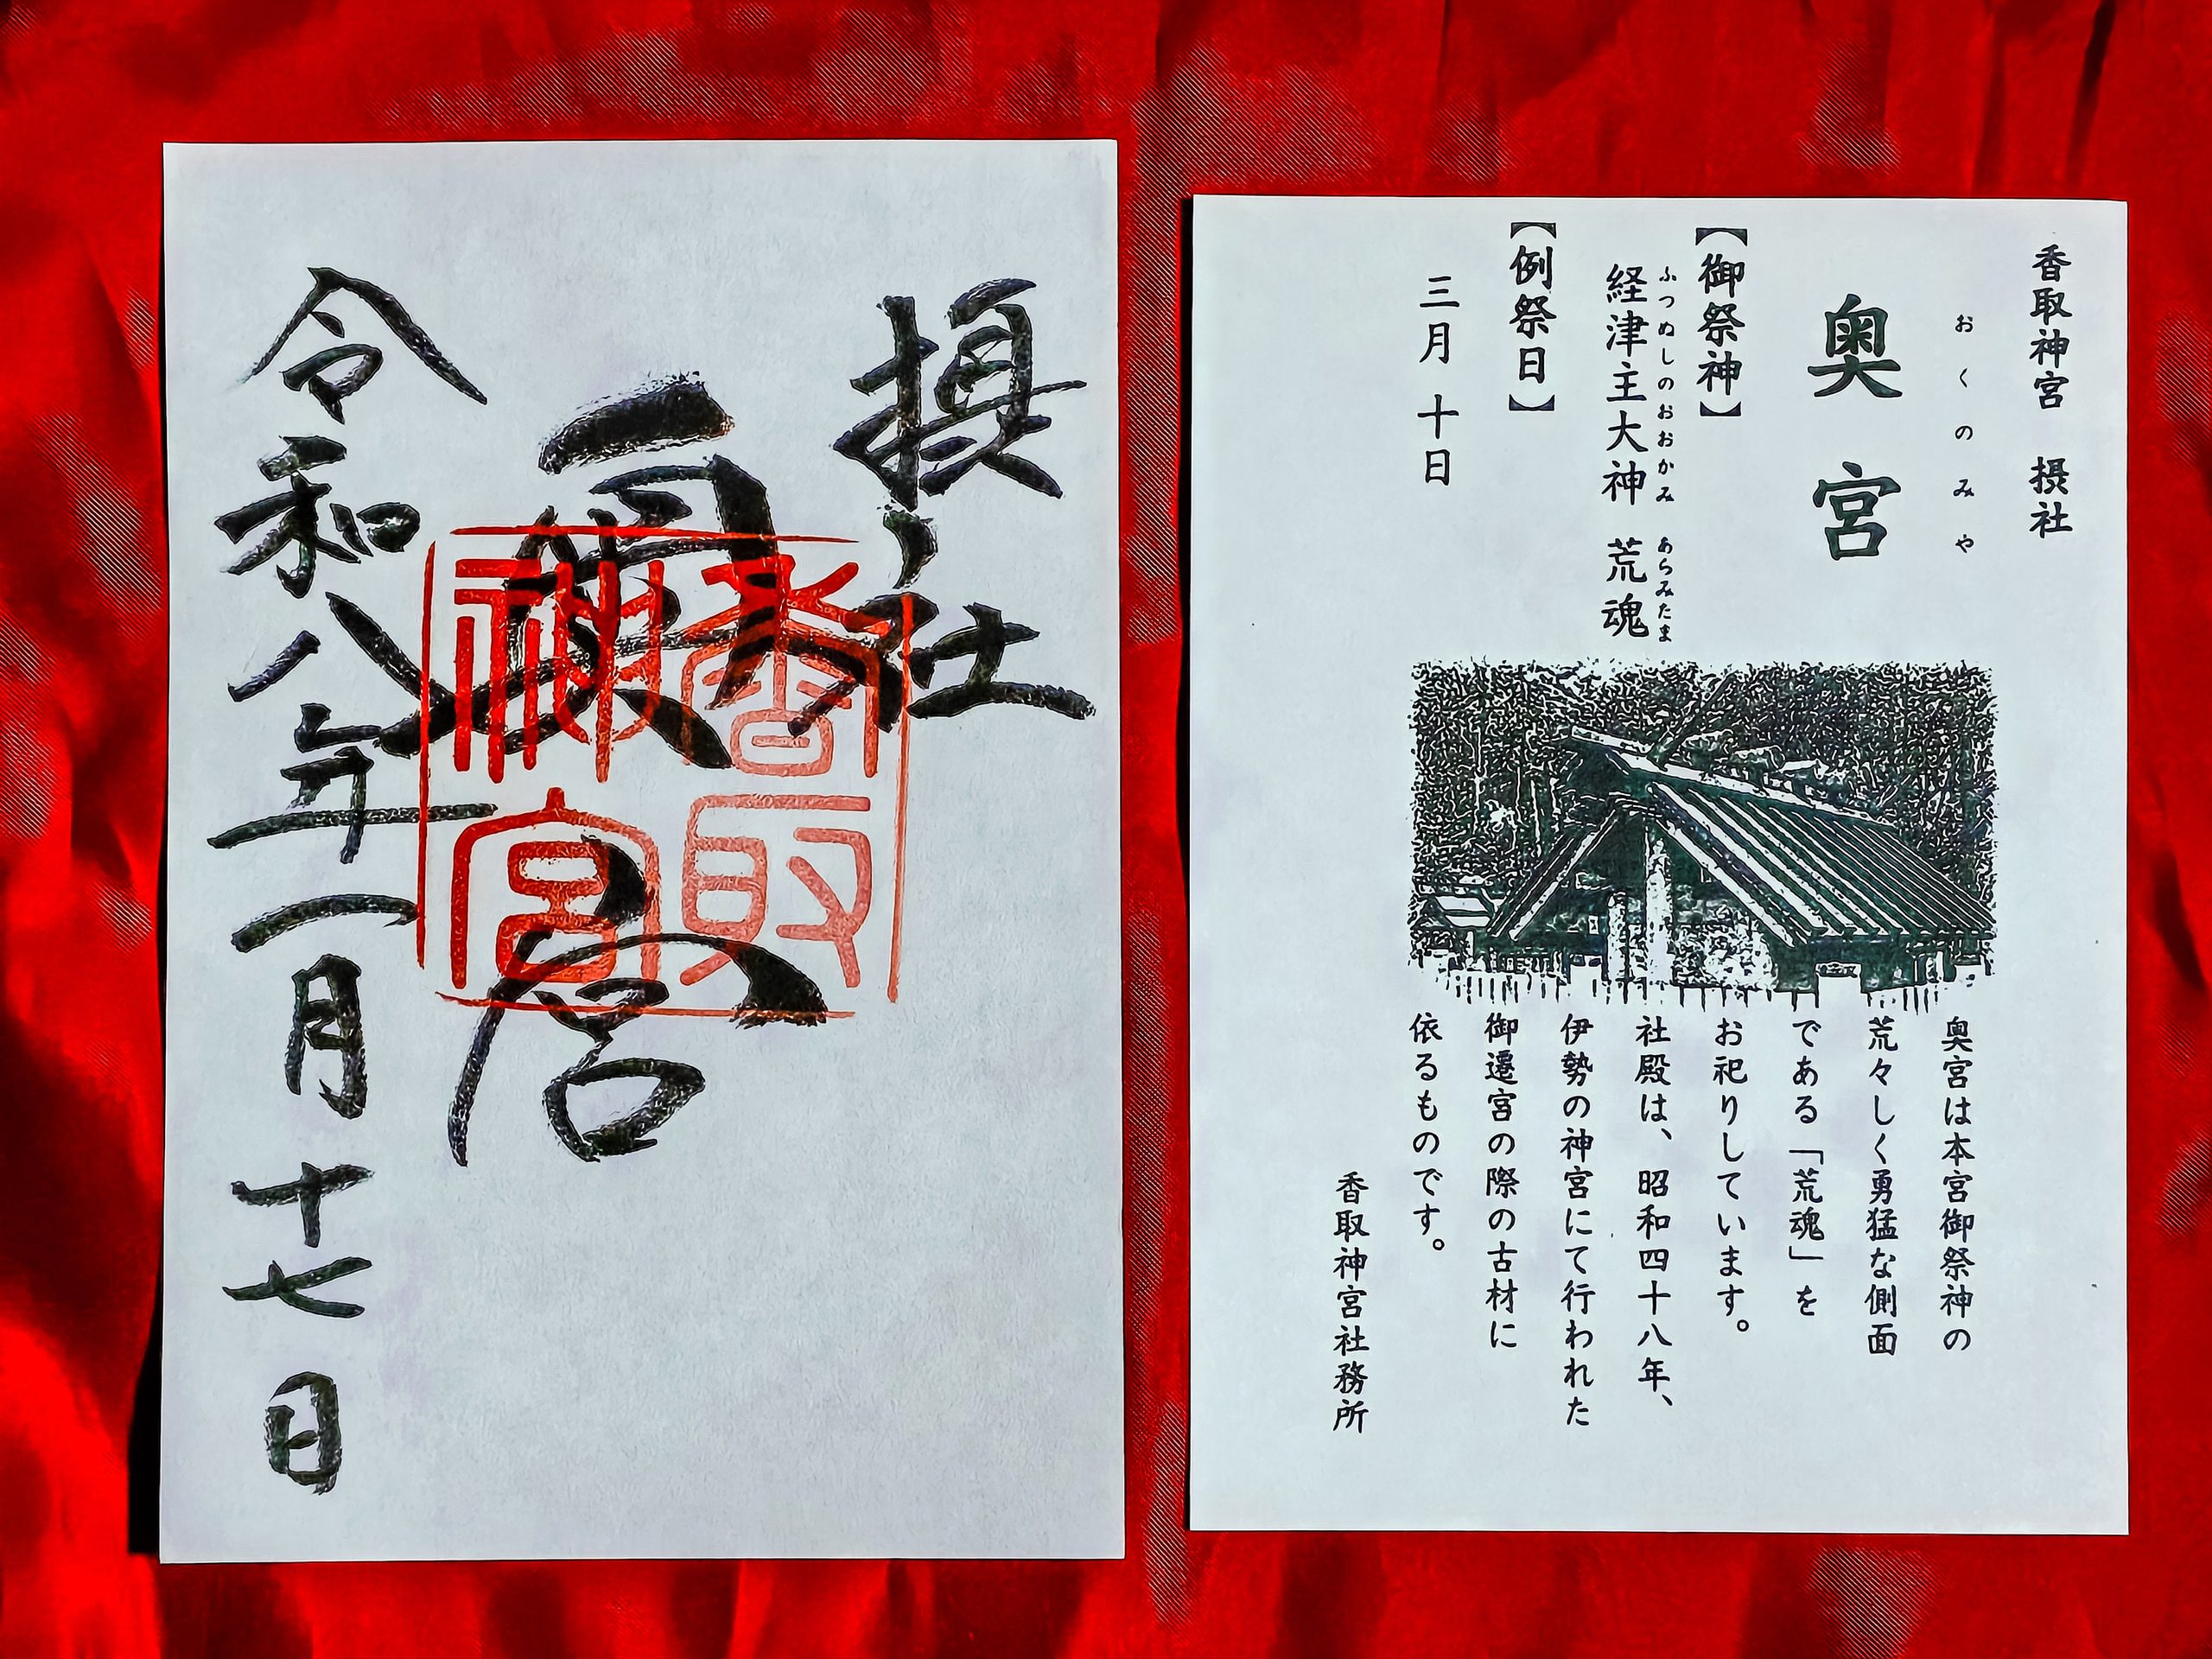 摂社
奥宮
香取神宮
令和八年一月十七日
香取神宮 摂社
おくのみや
奥宮
【御祭神】
ふつぬしのおおかみ あらみたま
経津主大神 荒魂
【例祭日】
三月十日
奥宮は本宮御祭神の
荒々しく勇猛な側面
である「荒魂」を
お祀りしています。
社殿は、昭和四十八年、
伊勢の神宮にて行われた
御遷宮の際の古材に
依るものです。
香取神宮社務所